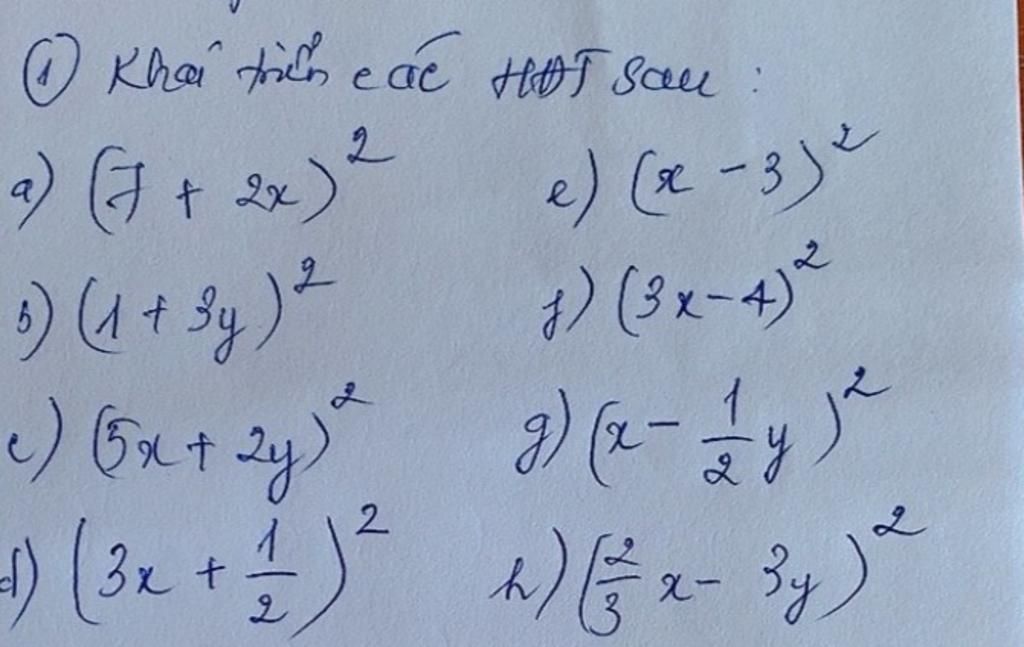 ① Khai triển các HĐT sau :
a) (7 + 2x)²
e) (x - 3)²
b) (1 + 3y)²
f) (3x - 4)²
c) (5x + 2y)²
g) (x - 1/2 y)²
d) (3x + 1/2)²
h) (2/3 x - 3y)²